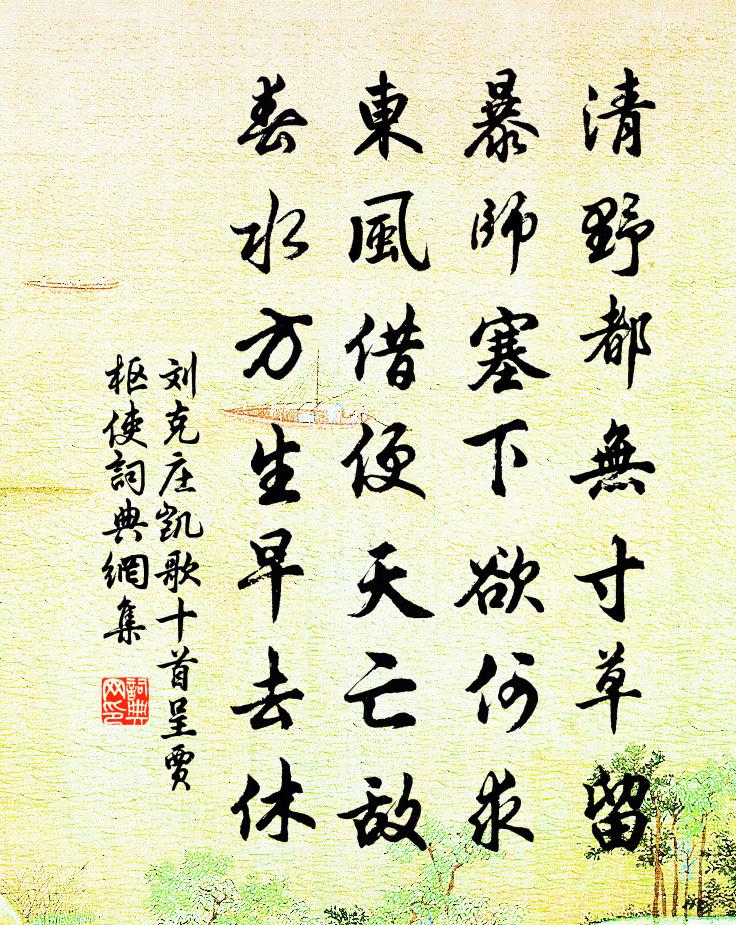 清野都無寸草留
暴師塞下欲何求
東風借便天亡敌
春水方生早去休
刘克庄凯歌十首呈贾
枢使詞典網集
詞典
网印